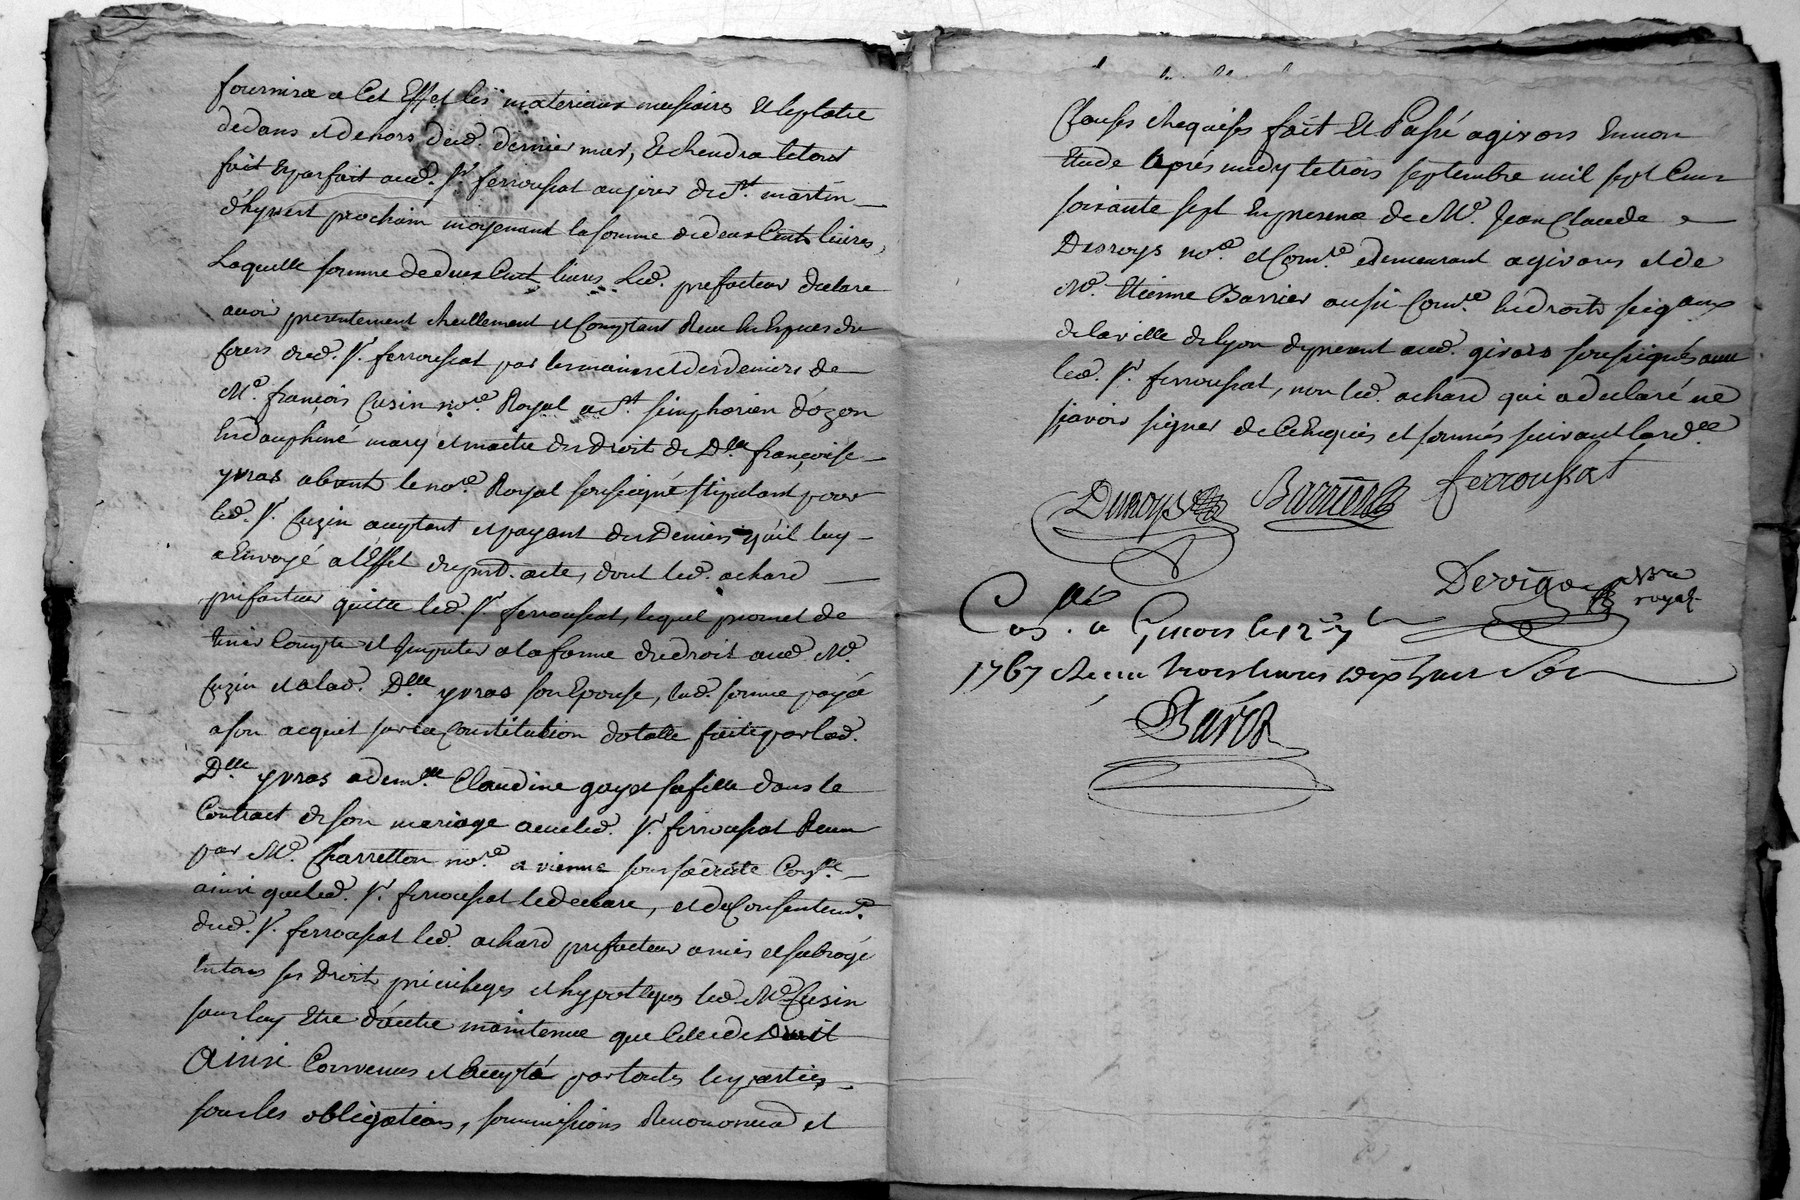 fournira a Cet Effet les materiaux nessaires Et le platre
dedans et dehors dud. dernier mur, Et rendra le tout
fait Et parfait aud. Sr ferroussat au jour de St. martin
d'hyvert prochain moyenant la somme de deux Cents livres,
Laquelle somme de deux Cent livres Led. prefacteur declare
avoir presentement reellement et Comptant Receu En Especes de
Cours dud. Sr. ferroussat par les mains et des deniers de
Me. françois Cusin nore. Royal a St. simphorien d'ozon
En dauphiné mary et maitre des droit de Dlle françoise
yvras absents le nore. Royal soussigné stipulant pour
led. Sr. Cuzin acceptant et payant des Deniers qu'il luy
a Envoyé a l'Effet du pnt. acte, dont led. achard
prefacteur quitte led. Sr. ferroussat, lequel promet de
tenir Compte et imputer a la forme du droit aud. Me.
Cuzin et a lad. Dlle. yvras son Epouse, lad. somme payée
a son acquit sur la Constitution dotalle faite par lad.
Dlle. yvras a demlle. Claudine gayet sa fille dans le
Contract de son mariage avec led. Sr. ferroussat Receu
par Me. Charretton nore. a vienne sous sa datte
ainsi que led. Sr. ferroussat le declare, et du Consentemt.
dud. Sr. ferroussat led. achard prefacteur a mis et subrogé
En tous ses droits privileges et hypoteques led. Me. Cusin
sans luy Etre d'autre maintenue que Celle de droit
Ainsi Convenus et accepté par touts les parties
sous les obligations, soumissions Renonciona et
Clauses Requises fait Et Passé a givors En mon
Etude après midy le trois septembre mil sept Cent
soixante sept En presence de Me. Jean Claude
Desroys nore. et Comre. demeurant a givors et de
Me. Etienne Barrier aussi Comre. Es droits seigaux
de la ville de lyon de present aud. givors soussignés avec
led. Sr. ferroussat, non led. achard qui a declaré ne
sçavoir signer de Ce Enquis et sommés suivant lord.ce
Desroys Barrier ferroussat
Dervigo nore royal
Coñ. a Givors le 12 7bre
1767 Receu trois livres dix sept sols
Barrier